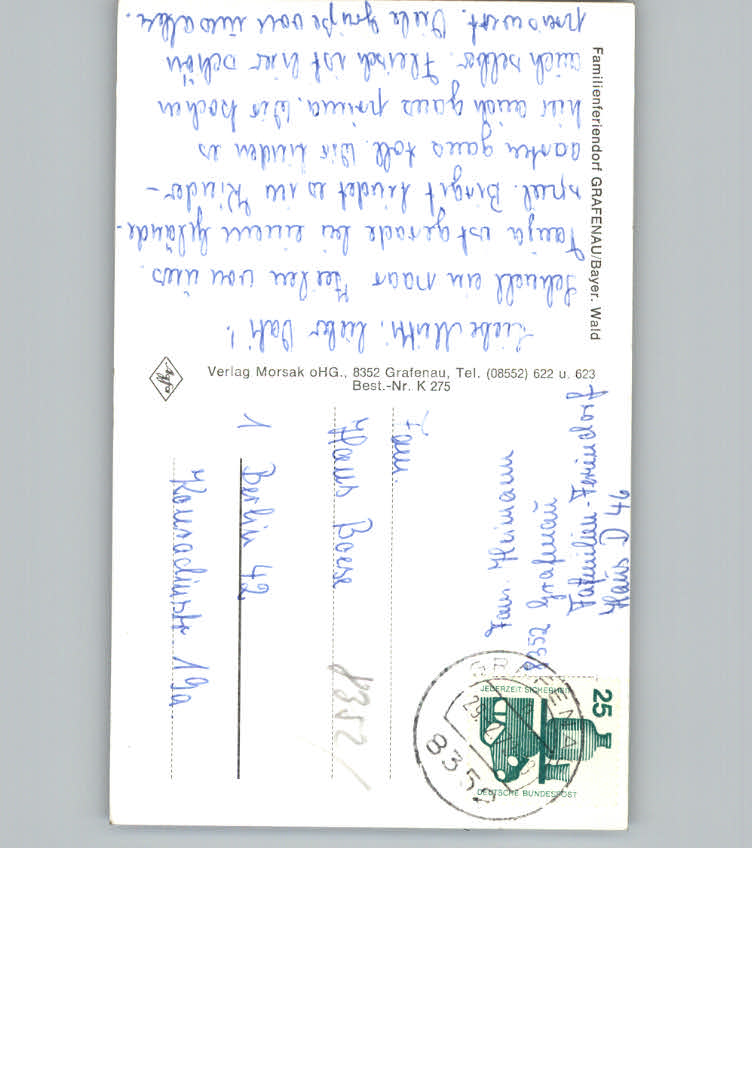 Familienferiendorf GRAFENAU/Bayer. Wald
Liebe Mutti, lieber Vati!
Schnell ein paar Zeilen von uns.
Tanja ist gerade bei einem Gelände-
spiel. Birgit findet es im Kinder-
garten ganz toll. Wir finden es
hier auch ganz prima. Wir kochen
auch selber. Fleisch ist hier schön
preiswert. Viele Grüße von uns allen.
Verlag Morsak oHG., 8352 Grafenau, Tel. (08552) 622 u. 623
Best.-Nr. K 275
Agfa
Fam. Heimann
8352 Grafenau
Familien-Feriendorf
Haus C 24
25
JEDERZEIT SICHERHEIT
DEUTSCHE BUNDESPOST
GRAFENAU
8352
Fam.
Hans Boese
1 Berlin 42
Konradinstr 19a
8352